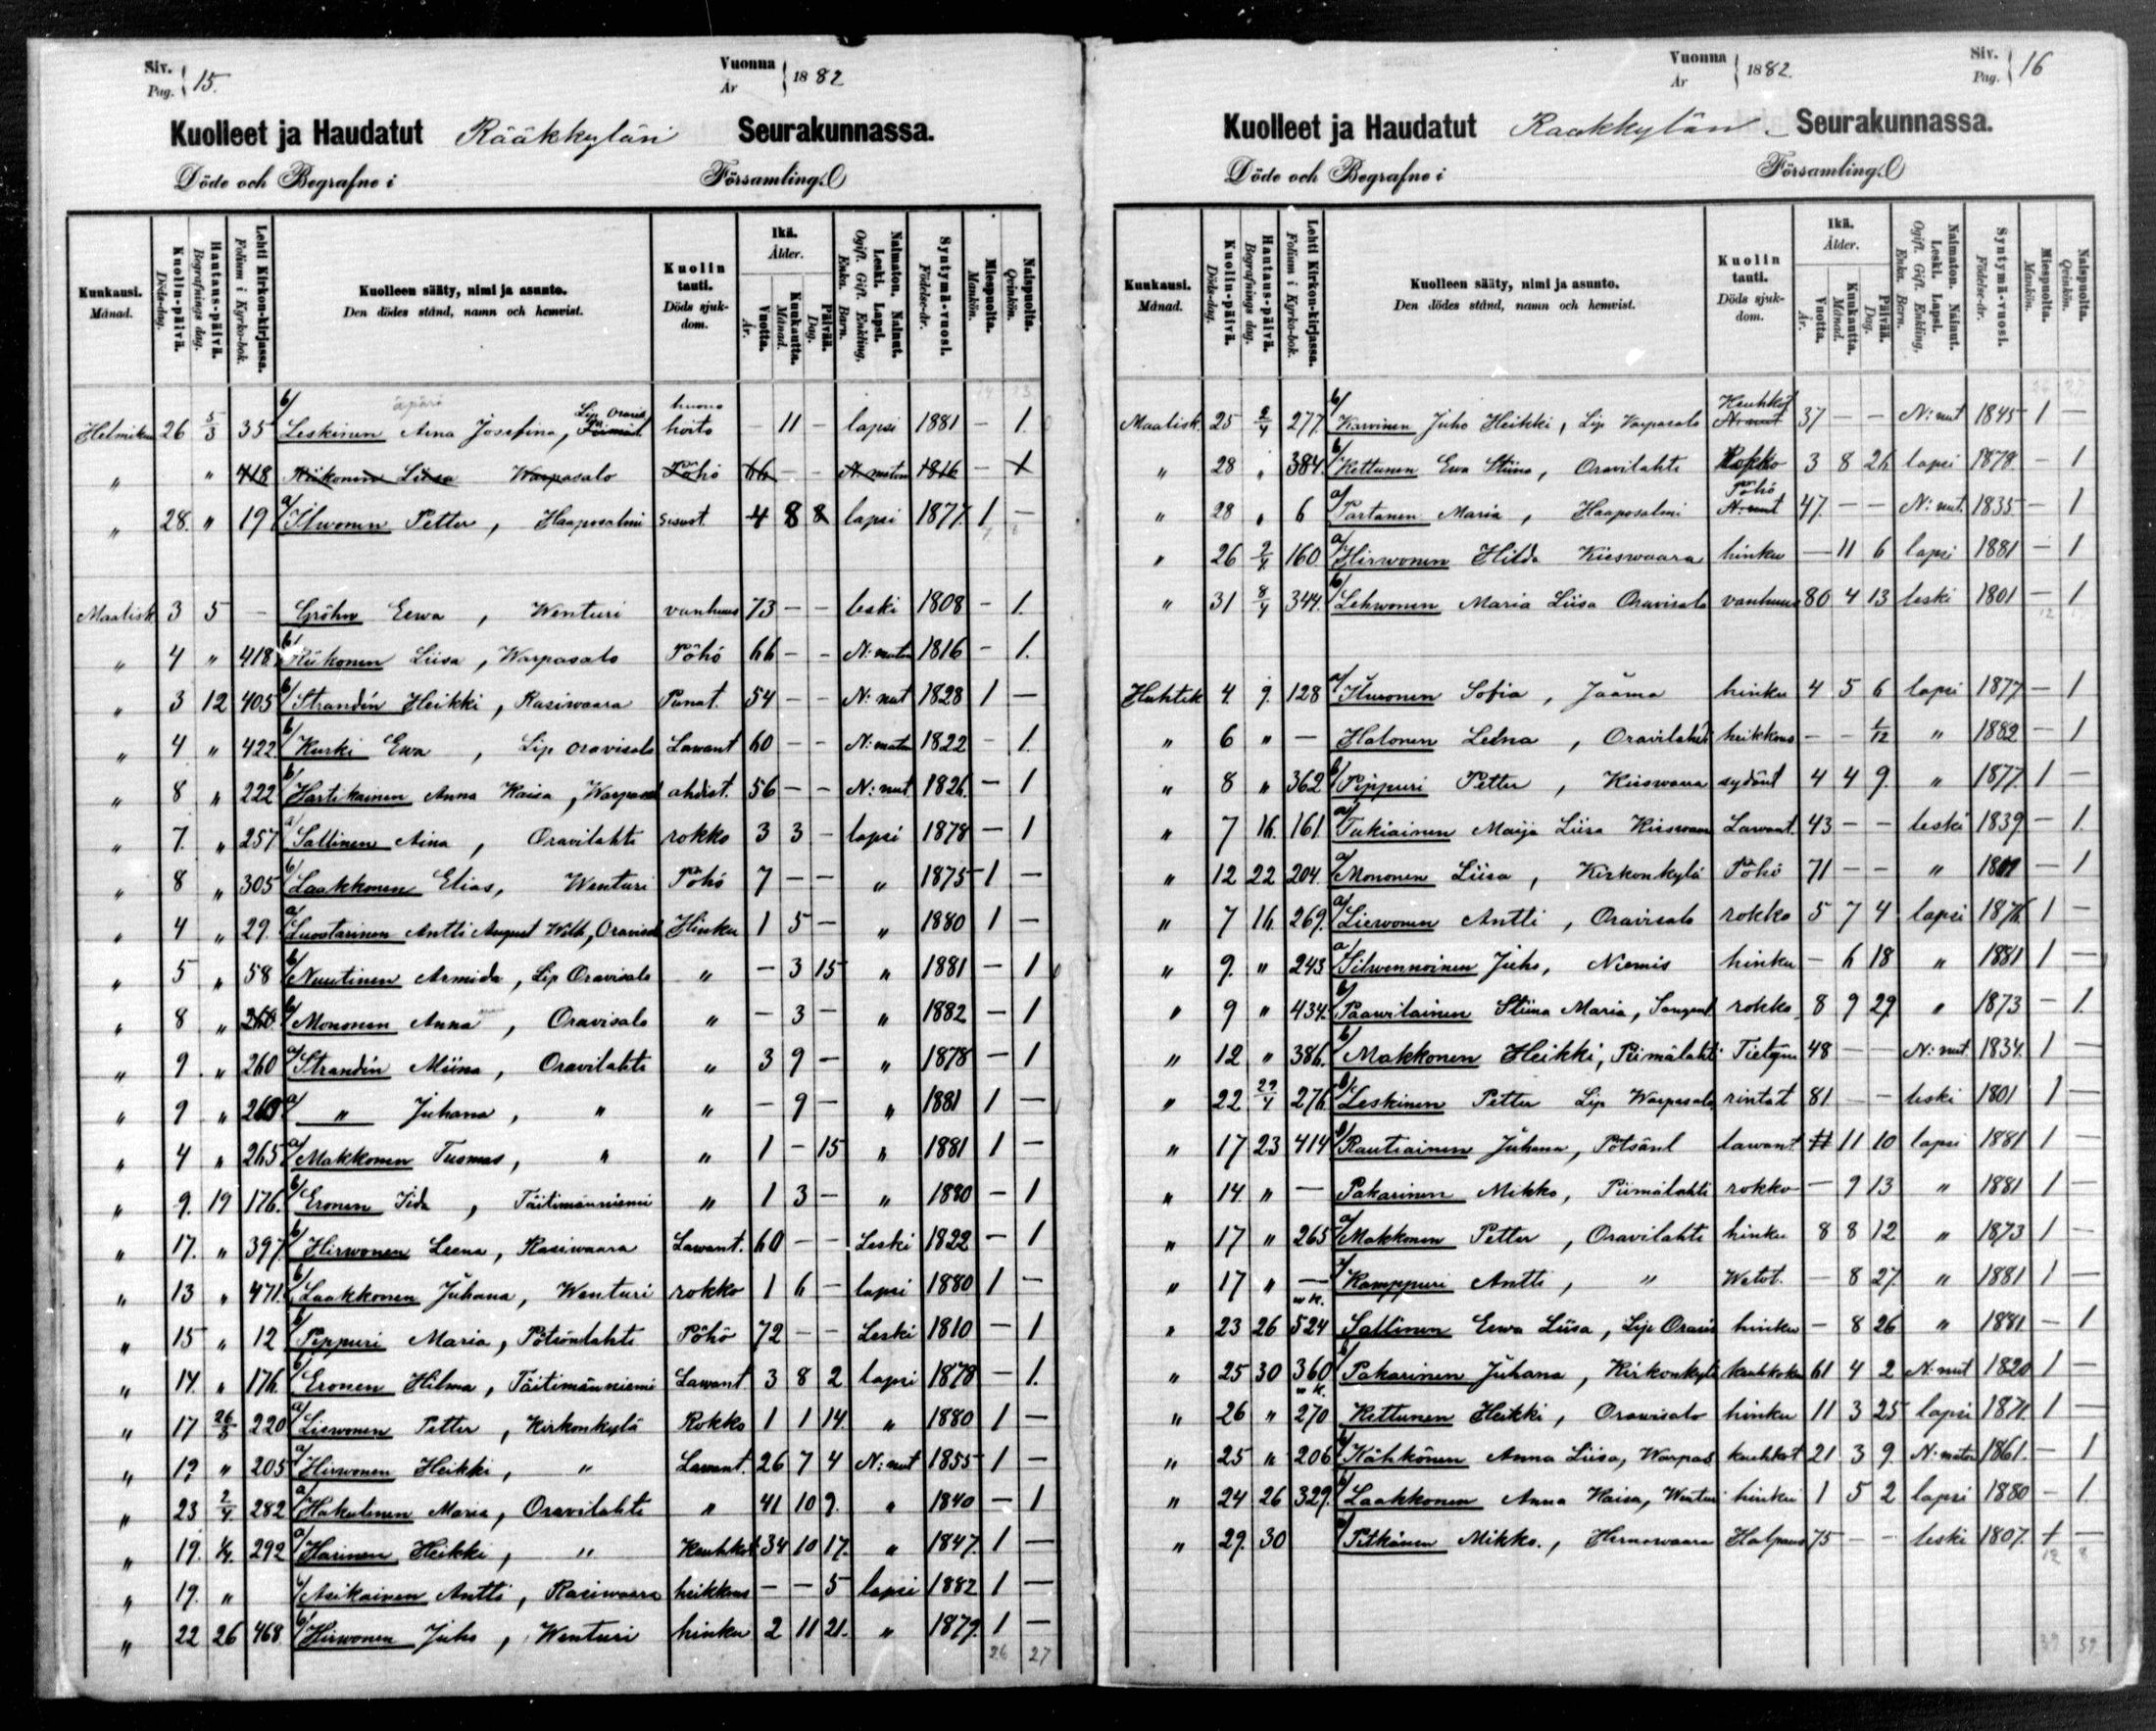 Siv. Pag. 15.
Vuonna År 1882
Kuolleet ja Haudatut Rääkkylän Seurakunnassa.
Döde och Begrafne i Församling.
Kunkausi. Månad. Kuolin-päivä. Döds-dag. Hautaus-päivä. Begrafnings dag. Lehti Kirkon-kirjassa. Folium i Kyrko-bok. Kuolleen sääty, nimi ja asunto. Den dödes stånd, namn och hemvist. Kuolin tauti. Döds sjukdom. Ikä. Ålder. Vuotta. År. Kuukautta. Månad. Päivää. Dag. Naimaton. Nainut. Leski. Lapsi. Ogift. Gift. Enkling. Enka. Barn. Syntymä-vuosi. Födelse-år. Miespuolta. Mankön. Naispuolta. Qvinkön.
Helmikuu 26 5/3 35 b/ Leskinen Aina Josefina, Lip Oravis huono hoito — 11 — lapsi 1881 — 1.
" " 418 Riikonen Liisa Warpasalo Pöhö 66 — — N:maton 1816 — 1
" 28. " 19 a/ Ilwonen Petter, Haaposalmi 4 8 8 lapsi 1877. 1 —
Maalisk 3 5 — Gröhn Eewa, Wenturi vanhuus 73 — — leski 1808 — 1.
" 4 " 418 b/ Riikonen Liisa, Warpasalo Pöhö 66 — — N:maton 1816 — 1.
" 3 12 405 b/ Strandén Heikki, Rasiwaara Punat. 54 — — N:nut 1828 1 —
" 4 " 422 b/ Kurki Ewa, Lip Oravisalo Lawant 60 — — N:maton 1822 — 1.
" 8 " 222 b/ Hartikainen Anna Kaisa, Warpasal ahdist. 56 — — N:nut 1826. — 1
" 7. " 257 a/ Sallinen Aina, Oravilahti rokko 3 3 — lapsi 1878 — 1
" 8 " 305 b/ Laakkonen Elias, Wenturi Pöhö 7 — — " 1875 1 —
" 4 " 29. a/ Luostarinen Antti August Wilh, Oravisal Hinku 1 5 — " 1880 1 —
" 5 " 58 b/ Nuutinen Armida, Lip Oravisalo " — 3 15 " 1881 — 1
" 8 " 260 b/ Mononen Anna, Oravisalo " — 3 — " 1882 — 1
" 9 " 260 a/ Strandén Miina, Oravilahti " 3 9 — " 1878 — 1
" 9 " 260 a/ " Juhana, " " — 9 — " 1881 1 —
" 4 " 265 a/ Makkonen Tuomas, " " 1 — 15 " 1881 1 —
" 9. 19 176. b/ Eronen Iida, Täitimänniemi " 1 3 — " 1880 — 1
" 17. " 397 b/ Hirwonen Leena, Rasiwaara Lawant. 60 — — Leski 1822 — 1
" 13 " 471. b/ Laakkonen Juhana, Wenturi rokko 1 6 — lapsi 1880 1 —
" 15 " 12 b/ Pippuri Maria, Pötsönlahti Pöhö 72 — — Leski 1810 — 1
" 14. " 176. b/ Eronen Hilma, Täitimänniemi Lawant 3 8 2 lapsi 1878 — 1.
" 17 26/3 220 a/ Liewonen Petter, Kirkonkylä Rokko 1 1 14. " 1880 1 —
" 19 " 205 a/ Hirwonen Heikki, " Lawant. 26 7 4 N:nut 1855 1 —
" 23 2/4 282 a/ Hakulinen Maria, Oravilahti " 41 10 9. " 1840 — 1
" 19. 292 a/ Harinen Heikki, " Keuhkot 34 10 17. " 1847. 1 —
" 19. " b/ Asikainen Antti, Rasiwaara heikkous — — 5 lapsi 1882 1 —
" 22 26 468 b/ Hirwonen Juho, Wenturi hinku 2 11 21. " 1879. 1 —
26 27
Siv. Pag. 16
Vuonna År 1882.
Kuolleet ja Haudatut Raakkylän Seurakunnassa.
Döde och Begrafne i Församling.
Kunkausi. Månad. Kuolin-päivä. Döds-dag. Hautaus-päivä. Begrafnings dag. Lehti Kirkon-kirjassa. Folium i Kyrko-bok. Kuolleen sääty, nimi ja asunto. Den dödes stånd, namn och hemvist. Kuolin tauti. Döds sjukdom. Ikä. Ålder. Vuotta. År. Kuukautta. Månad. Päivää. Dag. Naimaton. Nainut. Leski. Lapsi. Ogift. Gift. Enkling. Enka. Barn. Syntymä-vuosi. Födelse-år. Miespuolta. Mankön. Naispuolta. Qvinkön.
Maalisk. 25 2/4 277. b/ Karvinen Juho Heikki, Lip Warpasalo Keuhkot N:nut 37 — — N:nut 1845 1 —
" 28 " 384. b/ Kettunen Ewa Stiina, Oravilahti Rokko 3 8 26 lapsi 1878 — 1
" 28 " 6 a/ Partanen Maria, Haaposalmi Pöhö N:nut 47. — — N:nut. 1835 — 1
" 26 2/4 160. a/ Hirwonen Hilda Kieswaara hinku — 11 6 lapsi 1881 — 1
" 31 8/4 344. b/ Lehwonen Maria Liisa Oravisalo vanhuus 80 4 13 leski 1801 — 1
Huhtik 4. 9. 128 a/ Ikuonen Sofia, Jaama hinku 4 5 6 lapsi 1877 — 1
" 6 " — Halonen Leena, Oravilahti heikkous — — 1/12 " 1882 — 1
" 8 " 362 b/ Pippuri Petter, Kieswaara sydänt 4 4 9. " 1877. 1 —
" 7 16. 161. a/ Tukiainen Maija Liisa Kieswaar Lawant. 43 — — leski 1839 — 1.
" 12 22 204. a/ Mononen Liisa, Kirkonkylä Pöhö 71 — — " 1811 — 1
" 7 16. 269. a/ Liewonen Antti, Oravisalo rokko 5 7 4 lapsi 1876. 1 —
" 9. " 243 a/ Silwennoinen Juho, Niemis hinku — 6 18 " 1881 1 —
" 9 " 434. b/ Paawilainen Stiina Maria, rokko 8 9 29. " 1873 — 1.
" 12 " 386. b/ Makkonen Heikki, Piimälahti 48 — — N:nut. 1834. 1 —
" 22 29/4 276. b/ Leskinen Petter Lip Warpasalo rintat 81 — — leski 1801 1 —
" 17 23 414 b/ Rautiainen Juhana, Pötsönl lawant. 11 10 lapsi 1881 1 —
" 14. " — Pakarinen Mikko, Piimälahti rokko — 9 13 " 1881 1 —
" 17 " 265 a/ Makkonen Petter, Oravilahti hinku 8 8 12 " 1873 1 —
" 17 " — Kamppuri Antti, " Watot. — 8 27. " 1881 1 —
" 23 26 524 Sallinen Eewa Liisa, Lip Oravis hinku — 8 26 " 1881 — 1
" 25 30 360 b/ Pakarinen Juhana, Kirkonkylä 61 4 2 N:nut 1820 1 —
" 26 " 270 Kettunen Heikki, Orawisalo hinku 11 3 25 lapsi 1871. 1 —
" 25 " 206 b/ Kähkönen Anna Liisa, Warpas keuhkot 21 3 9. N:maton 1861. — 1
" 24 26 329. b/ Laakkonen Anna Kaisa, Wentur hinku 1 5 2 lapsi 1880 — 1.
" 29. 30 a/ Pitkänen Mikko., Hirnowaara Halpaus 75 — — leski 1807. 1 —